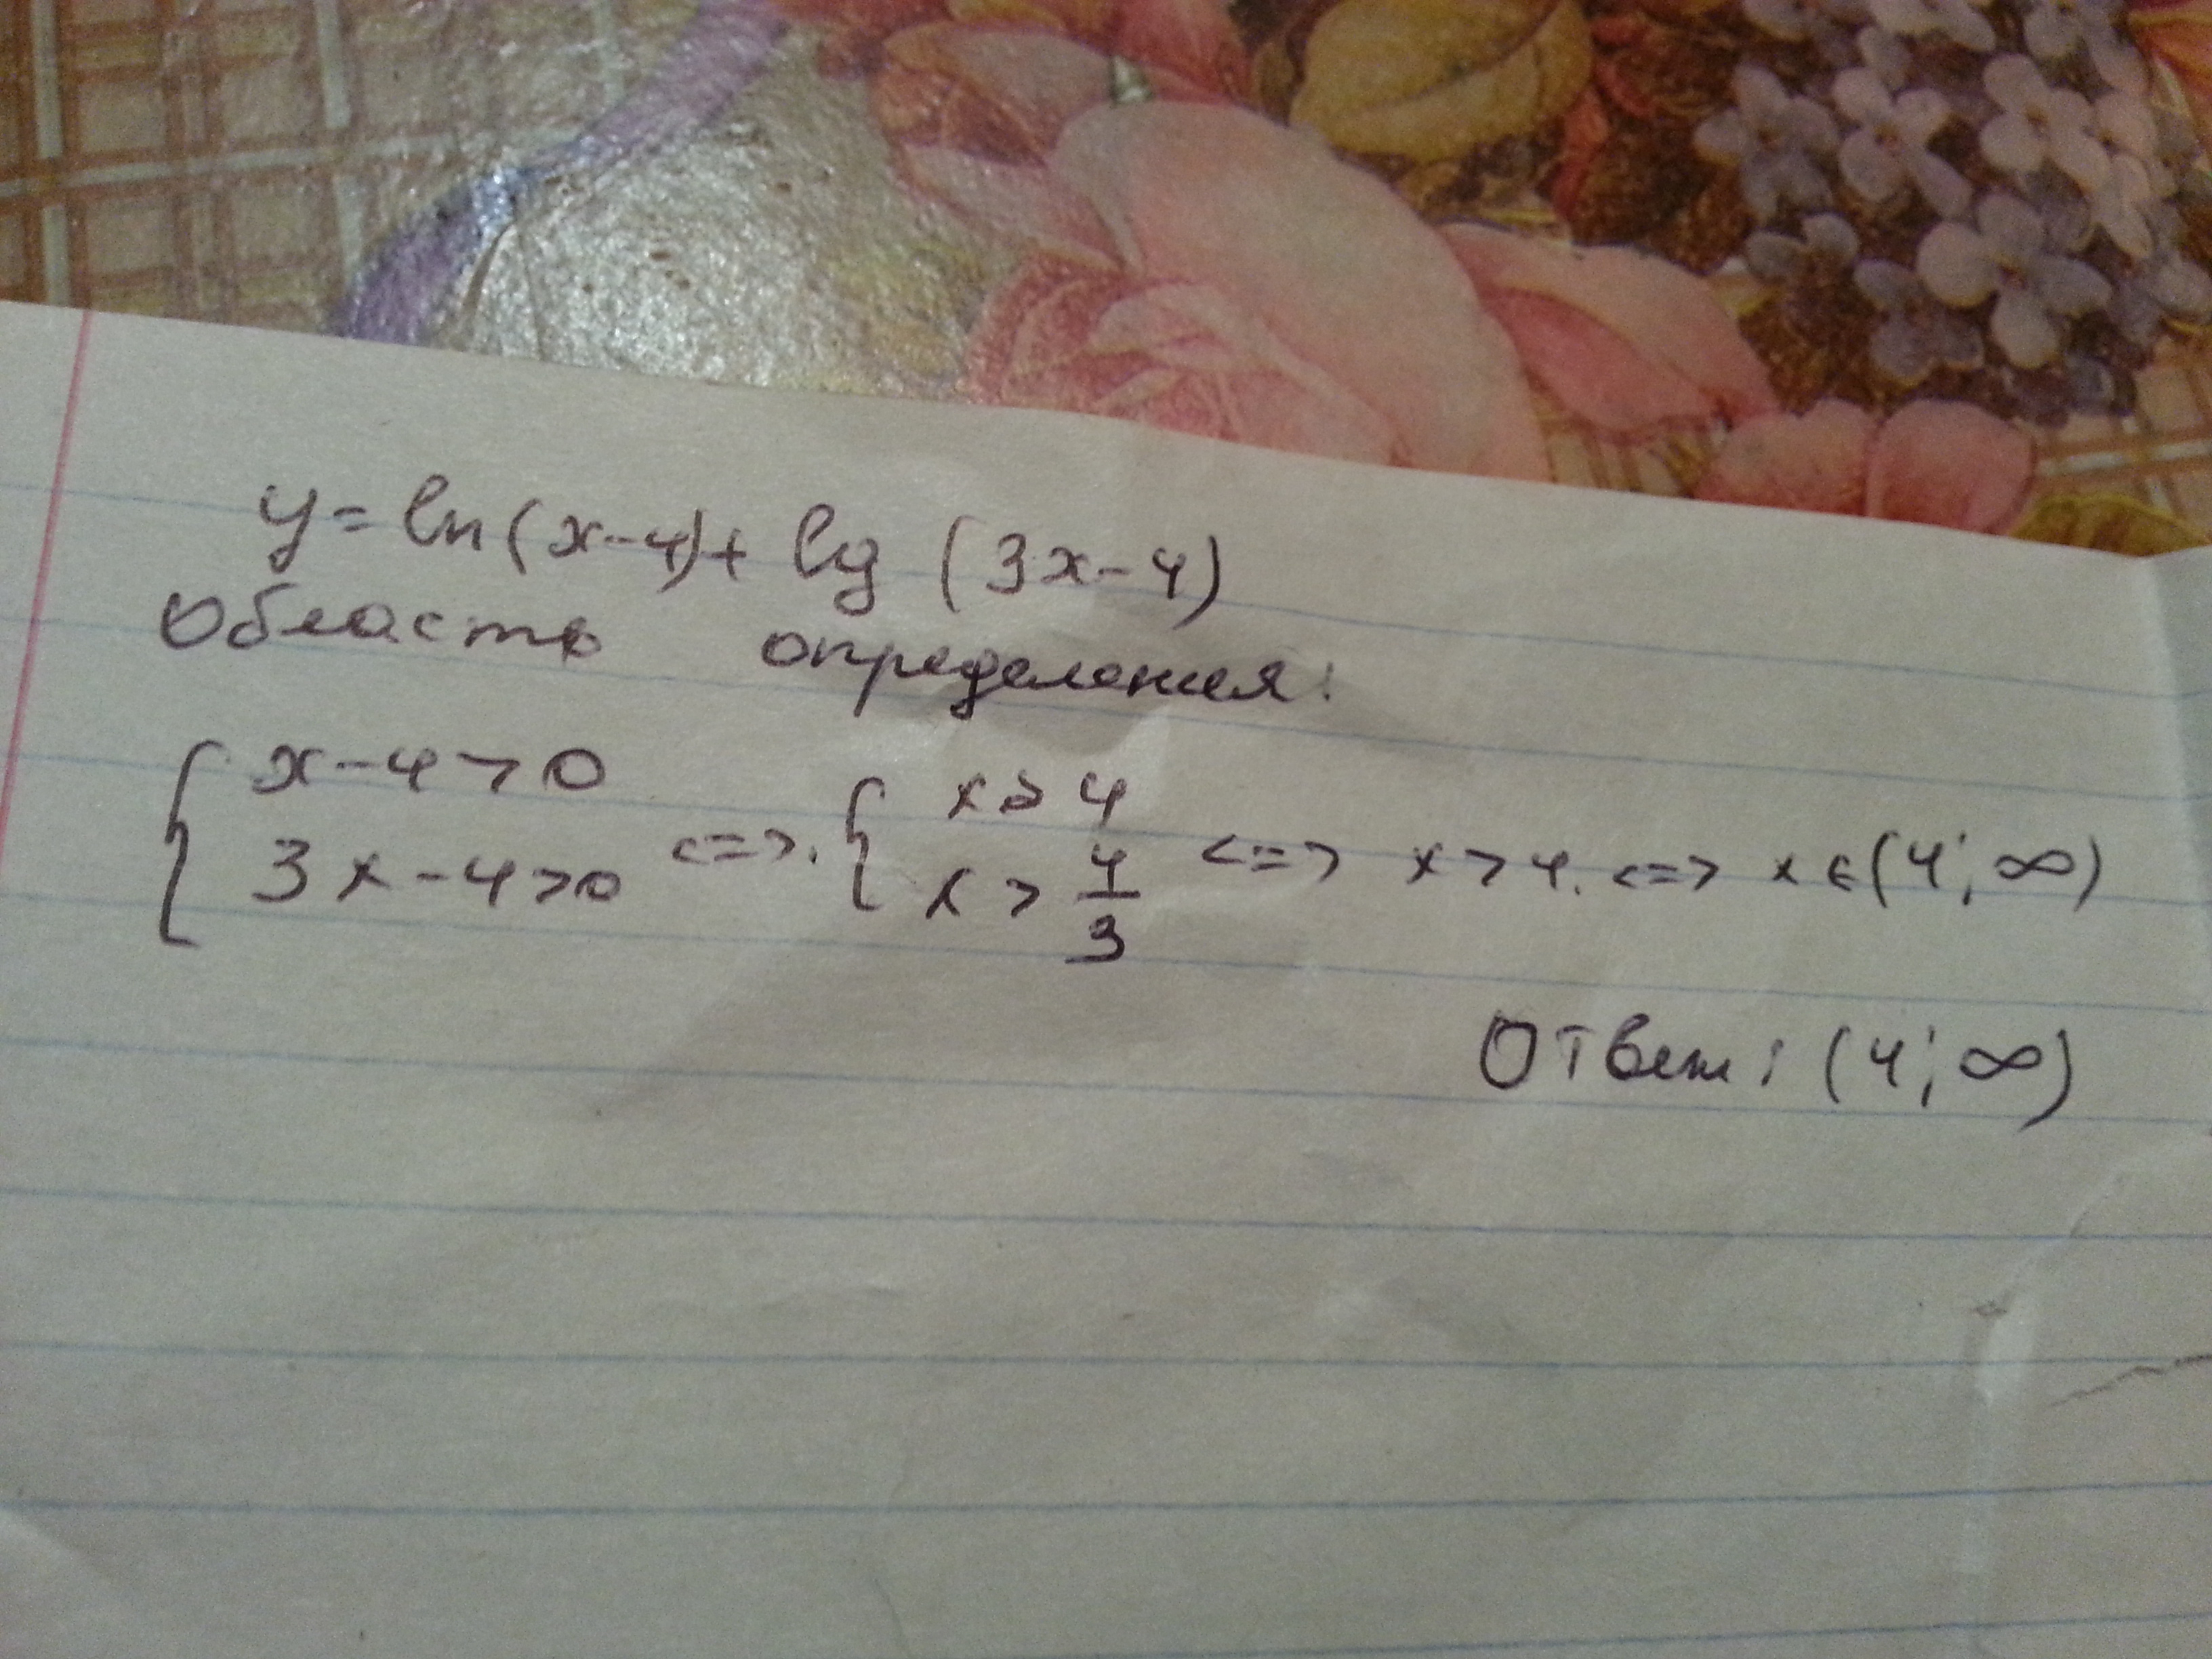 y = ln(x-4)+ lg (3x-4)
Область определения:
{ x-4>0
3x-4>0 <=>. { x > 4
x > 4/3 <=> x > 4. <=> x ∈ (4; ∞)
Ответ: (4; ∞)